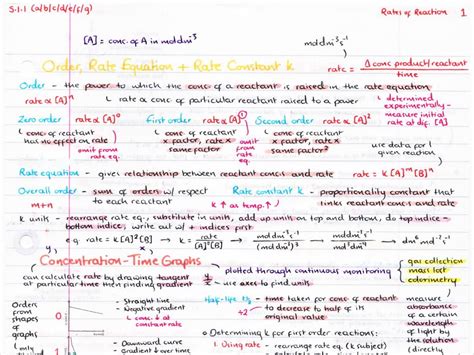 5.1.1 (a/b/c/d/e/f/g)
Rates of Reaction 1
[A] = conc. of A in moldm⁻³
moldm⁻³s⁻¹
Order, Rate Equation + Rate Constant k
rate = Δ conc product/reactant / time
Order - the power to which the conc of a reactant is raised in the rate equation
rate ∝ [A]ⁿ
rate ∝ conc of particular reactant raised to a power
determined experimentally - measure initial rate at dif. [A]
Zero order rate ∝ [A]⁰
First order rate ∝ [A]¹
Second order rate ∝ [A]²
conc of reactant has no effect on rate
omit from rate eq.
conc of reactant x factor, rate x same factor
omit from rate eq.
conc of reactant x factor, rate x factor²
use data for given reaction
Rate equation - gives relationship between reactant concs and rate
rate = k [A]ᵐ[B]ⁿ
Overall order - sum of orders w/ respect to each reactant
m+n
Rate constant k - proportionality constant that links reactant concs and rate
k ↑ as temp. ↑
k units - rearrange rate eq., substitute in units, add up units on top and bottom, do top indices - bottom indices, write out w/ + indices first
e.g. rate = k [A]²[B] → k = rate / [A]²[B] → moldm⁻³s⁻¹ / (moldm⁻³)²(moldm⁻³) → dm⁶mol⁻²s⁻¹
Concentration-Time Graphs
can calculate rate by drawing tangent at particular time then finding gradient
y/x
use axes to find units
plotted through continuous monitoring
gas collection
mass lost
colorimetry
Orders from shapes of graphs
0
Straight line
Negative gradient
conc ↓ at constant rate
Downward curve
Gradient ↓ over time
Half-life t½ - time taken for conc of reactant to decrease to half of its original value
÷2
Determining k for first order reactions:
1. Using rate - rearrange rate eq. (k subject)
measure absorbance of a certain wavelength of light by the solution (directly